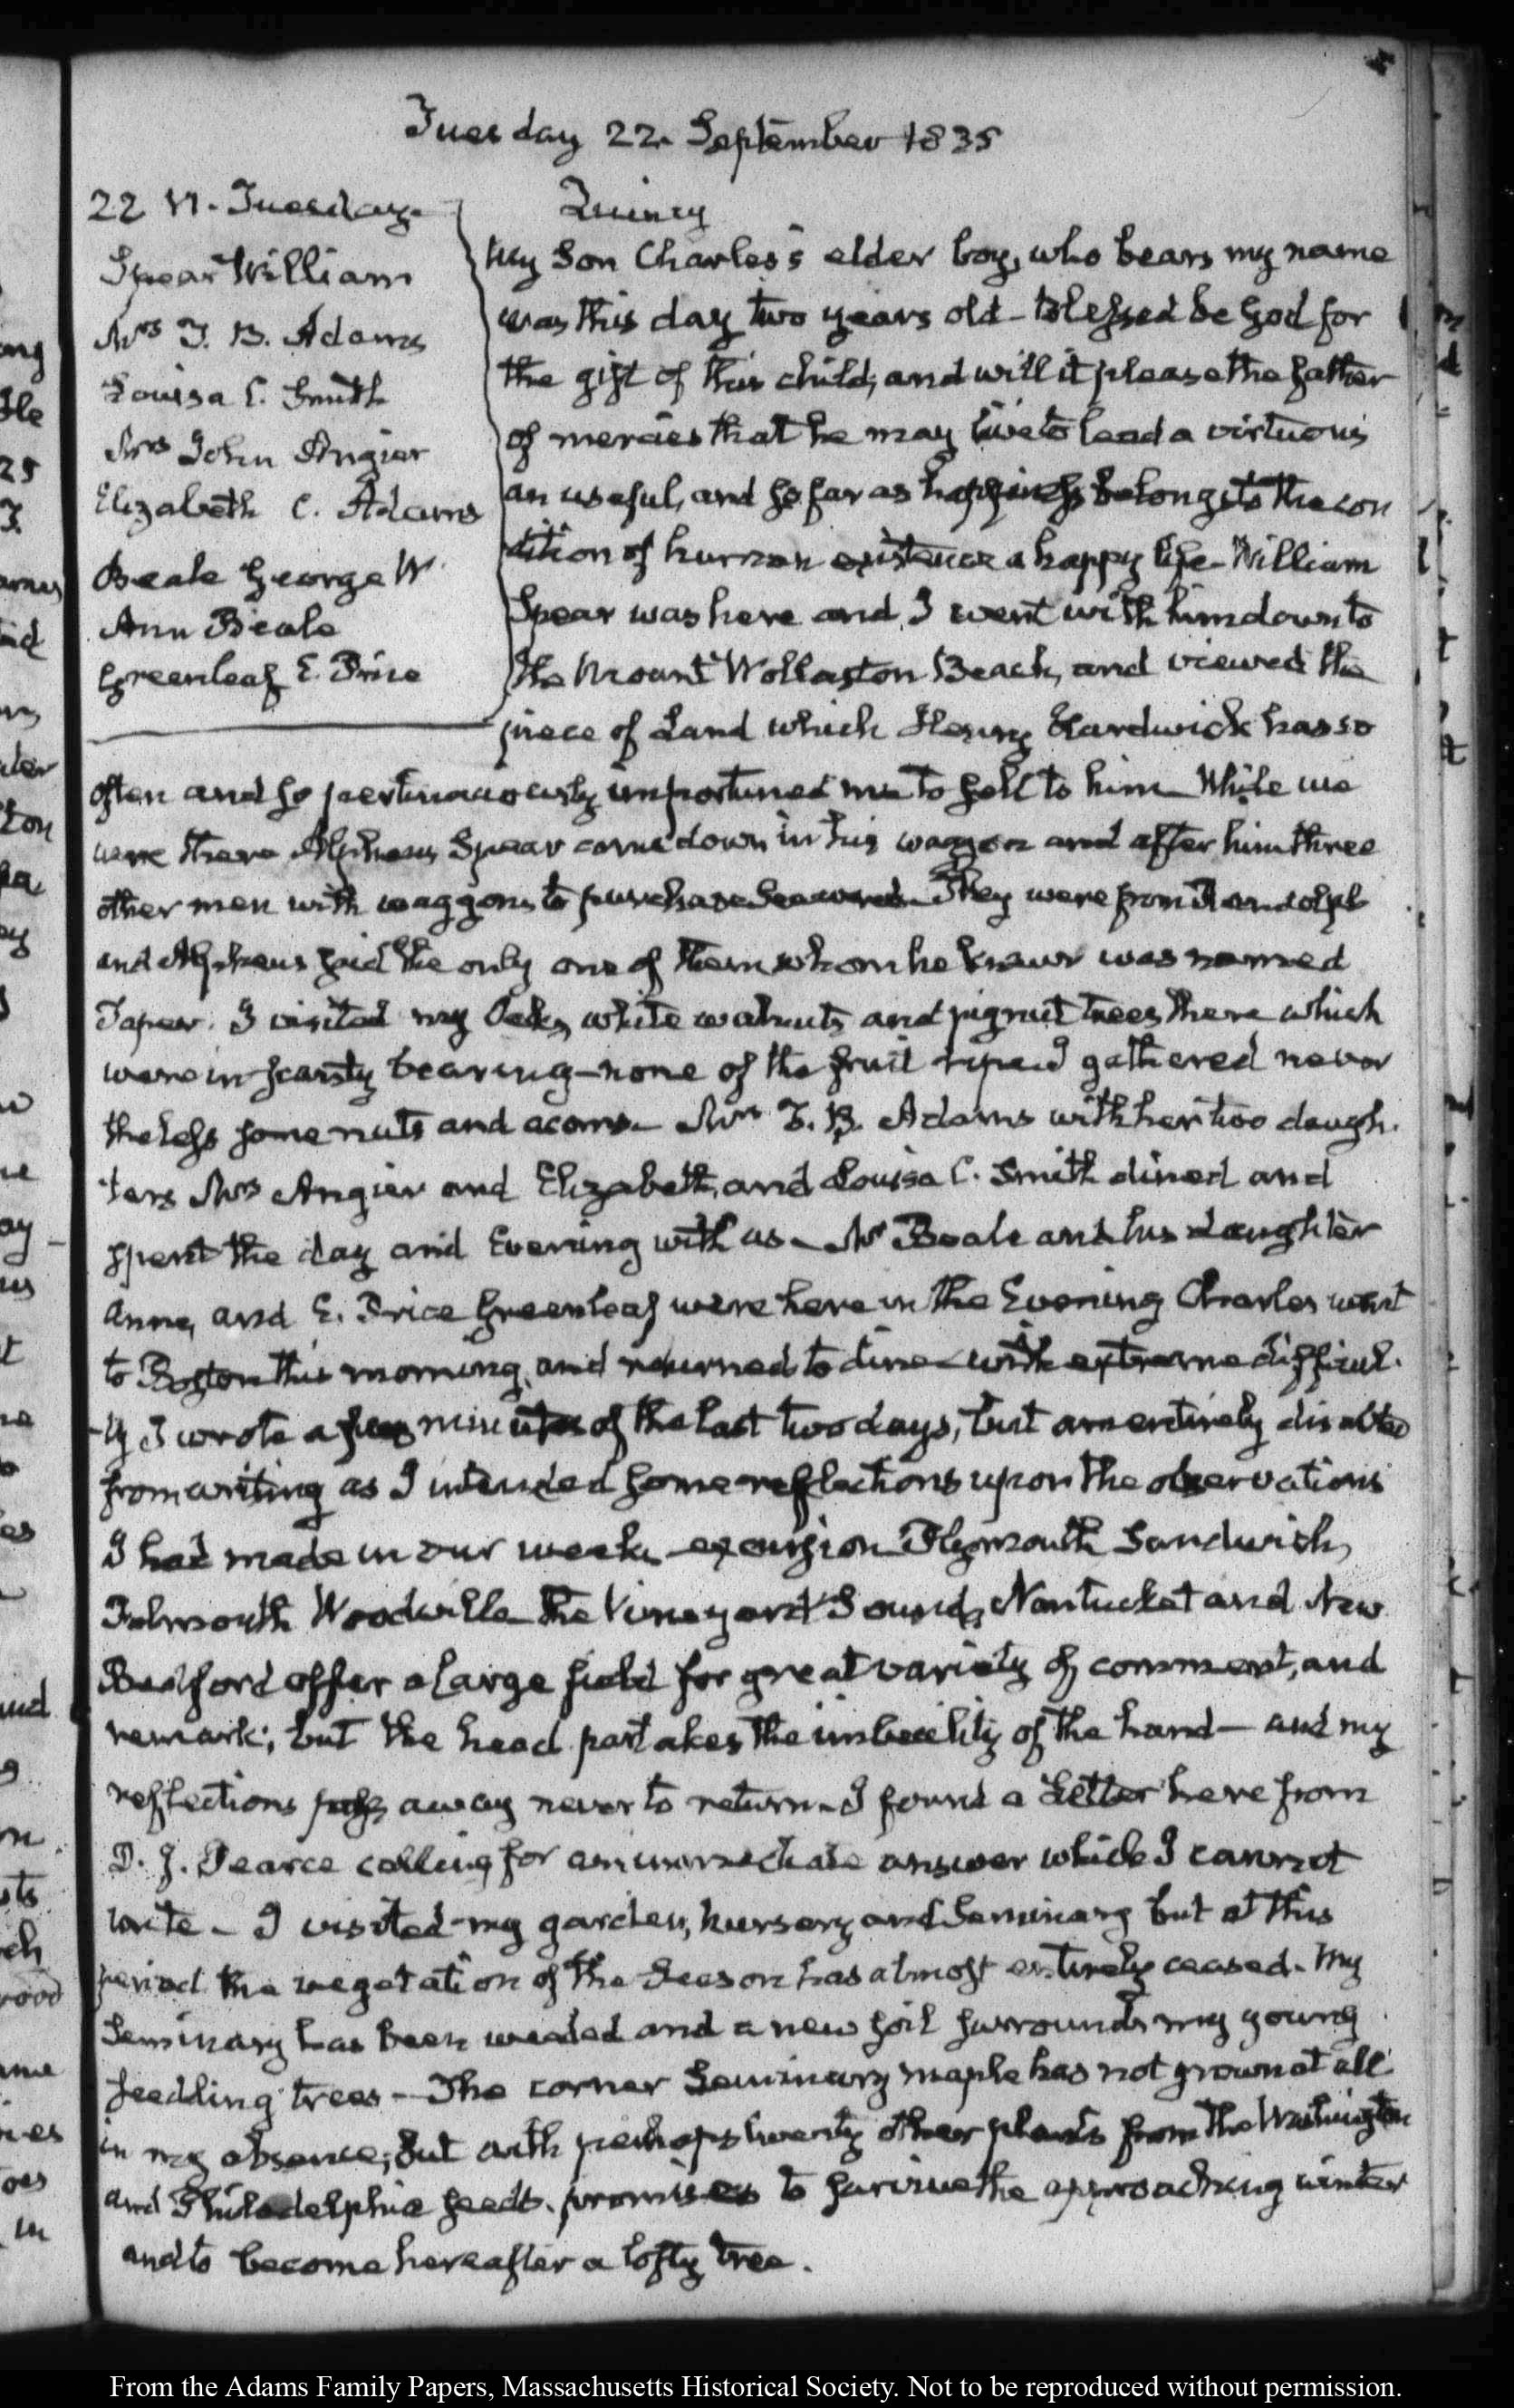 Tuesday 22. September 1835
22 VI. Tuesday.
Spear William
Mrs T. B. Adams
Louisa C. Smith
Mrs John Angier
Elizabeth C. Adams
Beale George W.
Ann Beale
Greenleaf E. Price
Quincy
My Son Charles's elder boy, who bears my name
was this day two years old — Blessed be God for
the gift of this child, and will it please the father
of mercies that he may live to lead a virtuous
an useful, and so far as happiness belongs to the con
dition of human existence a happy life — William
Spear was here and I went with him down to
the Mount Wollaston Beach, and viewed the
piece of Land which Henry Hardwick has so
often and so pertinaciously importuned me to sell to him — While we
were there Alpheus Spear came down in his waggon and after him three
other men with waggons to purchase Seaweed — They were from Randolph
and Alpheus said the only one of them whom he knew was named
I visited my Oaks, white walnuts and pignut trees there which
were in scanty bearing — none of the fruit ripe. I gathered never
theless some nuts and acorns — Mrs T. B. Adams with her two daugh-
ters Mrs Angier and Elizabeth, and Louisa C. Smith dined and
spent the day and Evening with us — Mr Beale and his daughter
Anne, and E. Price Greenleaf were here in the Evening Charles went
to Boston this morning, and returned to dine — with extreme difficul-
-ty I wrote a few minutes of the last two days, but am entirely disabled
from writing as I intended some reflections upon the observations
I had made in our week's excursion Plymouth Sandwich,
Falmouth Woodville the Vineyard Sound, Nantucket and New
Bedford offer a large field for great variety of comment, and
remark; but the head partakes the imbecility of the hand — and my
reflections pass away never to return — I found a Letter here from
D. J. Pearce calling for an immediate answer which I cannot
write — I visited my garden, nursery and Seminary but at this
period the vegetation of the Season has almost entirely ceased. My
Seminary has been weeded and a new soil surrounds my young
seedling trees — The corner Seminary maple has not grown at all
in my absence; but with perhaps twenty other plants from the Washington
and Philadelphia seeds, promises to survive the approaching winter
and to become hereafter a lofty tree.
From the Adams Family Papers, Massachusetts Historical Society. Not to be reproduced without permission.